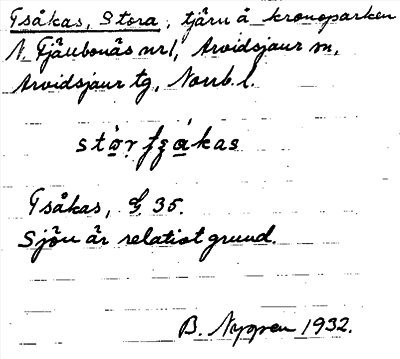 Tsåkas, Stora, tjärn å kronoparken
N. Fjällbonäs nr 1, Arvidsjaur sn,
Arvidsjaur tg, Norrb. l.
Tsåkas, G 35.
Sjön är relativt grund.
B. Nygren 1932.